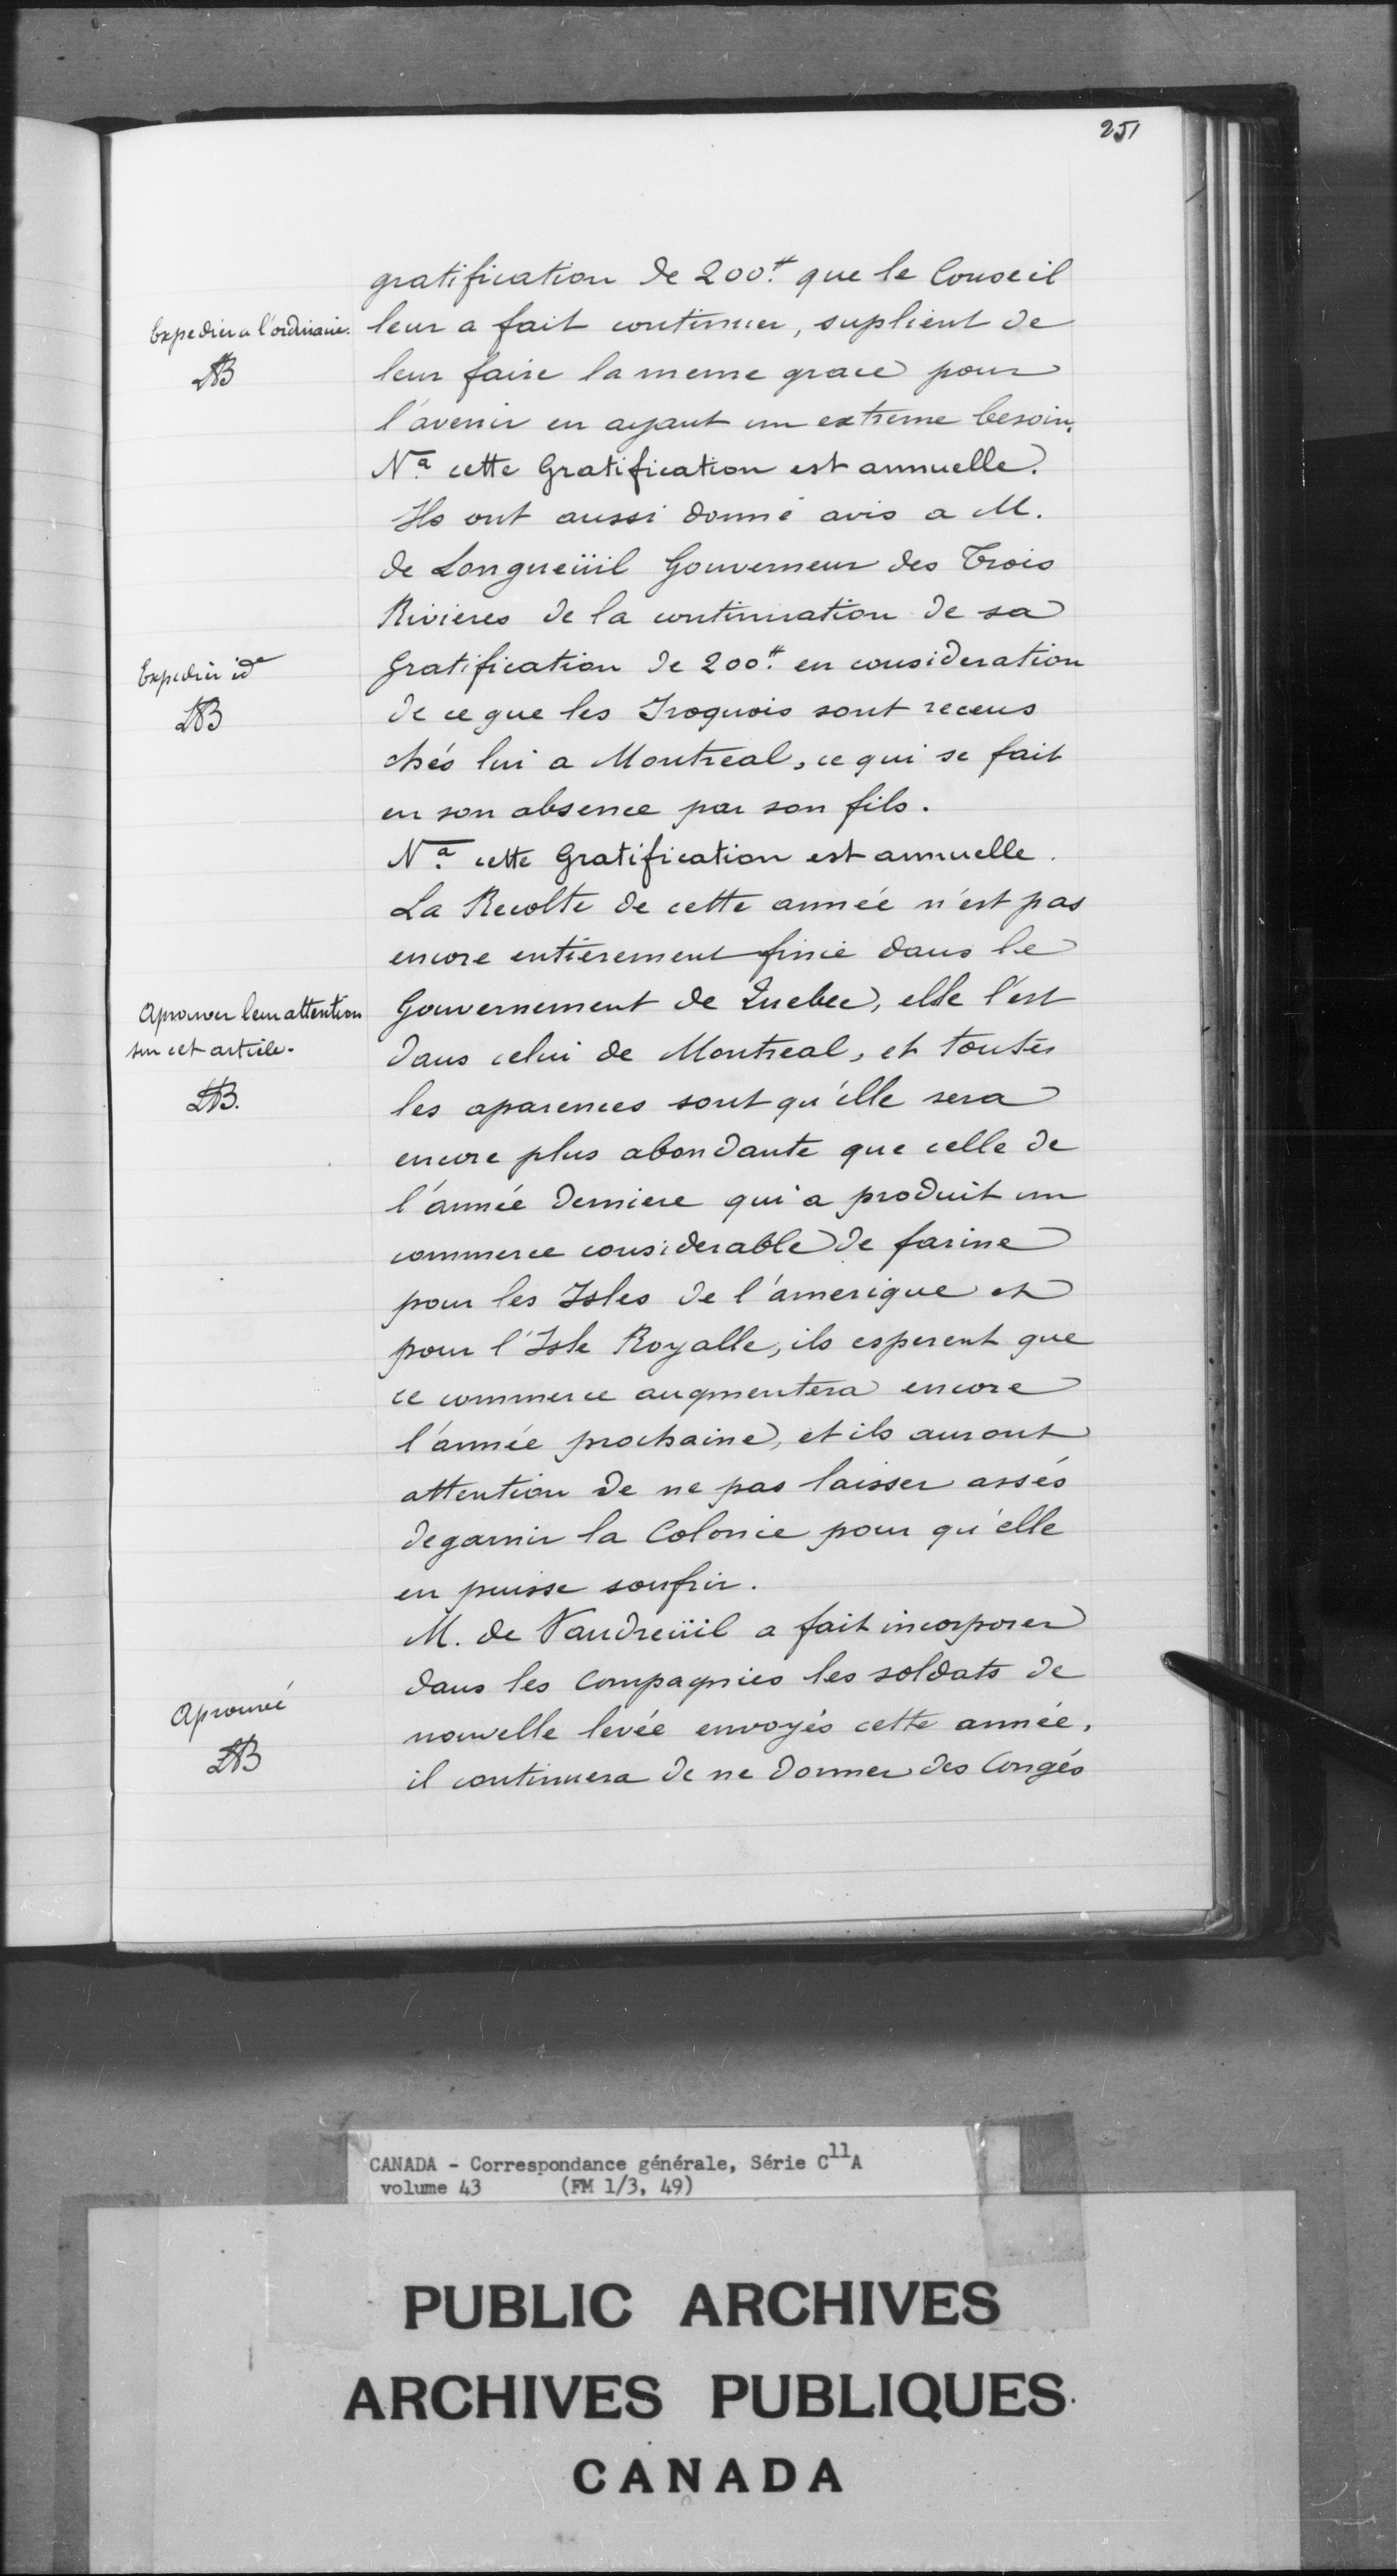 251
gratification de 200# que le Conseil
Expedier a l'ordinaire.
leur a fait continuer, suplient de
LAB
leur faire la meme grace pour
l'avenir en ayant un extreme besoin.
Na cette Gratification est annuelle.
Ils ont aussi donné avis a M.
de Longueüil Gouverneur des Trois
Rivieres de la continuation de sa
Expedier ide
gratification de 200# en consideration
LAB
de ce que les Iroquois sont receus
chés lui a Montreal, ce qui se fait
en son absence par son fils.
Na cette Gratification est annuelle.
La Recolte de cette année n'est pas
encore entierement finie dans le
Aprouver leur attention
sur cet article.
LAB.
Gouvernement de Quebec, elle l'est
dans celui de Montreal, et toutes
les aparences sont qu'elle sera
encore plus abondante que celle de
l'année derniere qui a produit un
commerce considerable de farine
pour les Isles de l'amerique et
pour l'Isle Royalle, ils esperent que
ce commerce augmentera encore
l'année prochaine, et ils auront
attention de ne pas laisser assés
degarnir la Colonie pour qu'elle
en puisse soufrir.
M. de Vaudreüil a fait incorporer
dans les Compagnies les soldats de
Aprouvé
LAB
nouvelle levée envoyés cette année,
il continuera de ne donner des Congés
CANADA - Correspondance générale, Série C11A
volume 43 (FM 1/3, 49)
PUBLIC ARCHIVES
ARCHIVES PUBLIQUES
CANADA